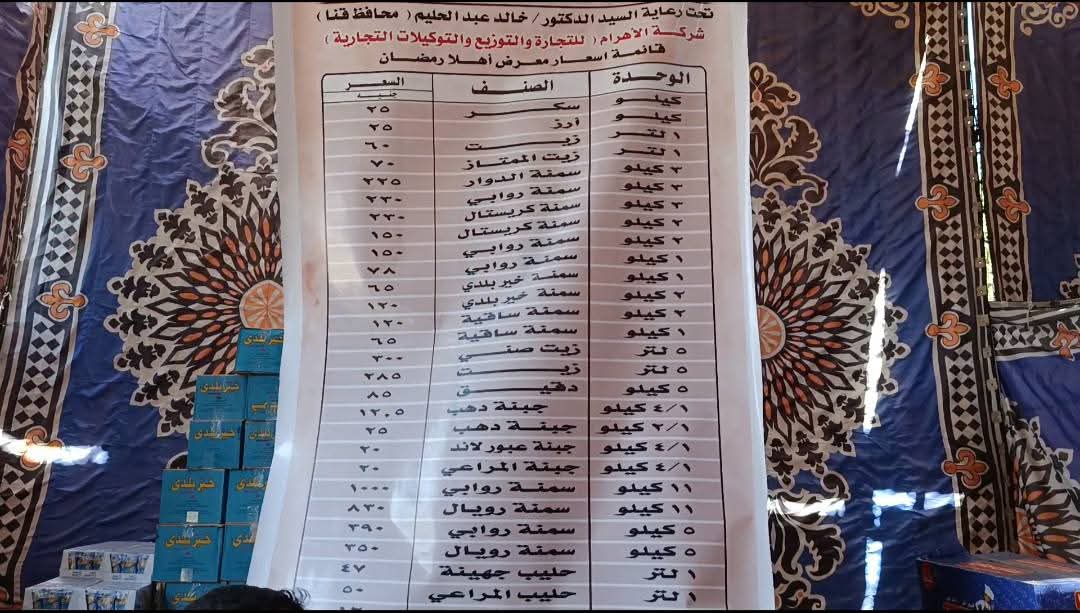 تحت رعاية السيد الدكتور / خالد عبد الحليم ( محافظ قنا )
شركة الاهرام ( للتجارة والتوزيع والتوكيلات التجارية )
قائمة اسعار معرض أهلا رمضان
الوحدة الصنف السعر
جنيه
كيلو سكر ٢٥
كيلو أرز ٢٥
١ لتر زيت ٦٠
١ لتر زيت الممتاز ٧٠
٣ كيلو سمنة الدوار ٢٢٥
٣ كيلو سمنة روابي ٢٣٠
٣ كيلو سمنة كريستال ٢٣٠
٢ كيلو سمنة كريستال ١٥٠
٢ كيلو سمنة روابي ١٥٠
١ كيلو سمنة روابي ٧٨
١ كيلو سمنة خير بلدي ٦٥
٢ كيلو سمنة خير بلدي ١٢٠
٢ كيلو سمنة ساقية ١٢٠
١ كيلو سمنة ساقية ٦٥
٥ لتر زيت صني ٣٠٠
٥ لتر زيت ٢٨٥
٥ كيلو دقيق ٨٥
٤/١ كيلو جبنة دهب ١٢.٥
٢/١ كيلو جبنة دهب ٢٥
٤/١ كيلو جبنة عبور لاند ٢٠
٤/١ كيلو جبنة المراعي ٢٠
١١ كيلو سمنة روابي ١٠٠٠
١١ كيلو سمنة رويال ٨٣٠
٥ كيلو سمنة روابي ٣٩٠
٥ كيلو سمنة رويال ٣٥٠
١ لتر حليب جهينة ٤٧
١ لتر حليب المراعي ٥٠
خير بلدى
خير بلدى
خير بلدى
خير بلدى
خير بلدى